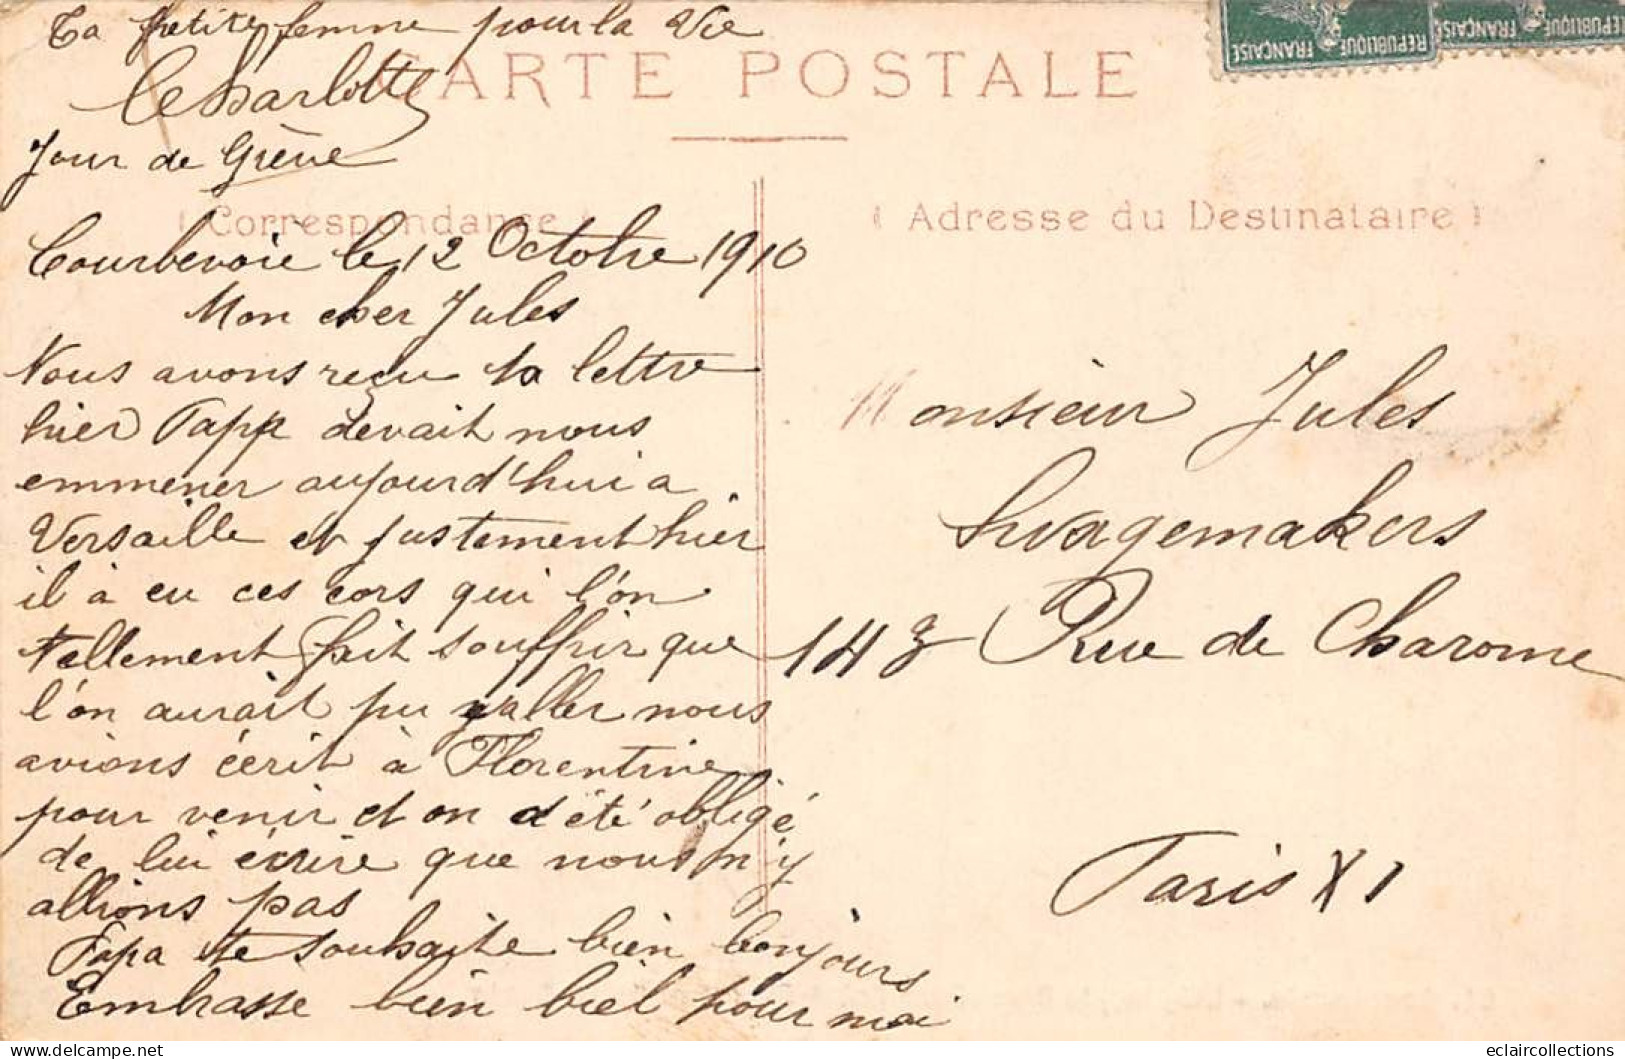 Ta petite femme pour la Vie
CARTE POSTALE
Jour de Grève
REPUBLIQUE FRANÇAISE
REPUBLIQUE FRANÇAISE
( Correspondance )
( Adresse du Destinataire )
Courbevoie le 12 Octobre 1910
Mon cher Jules
Nous avons reçu ta lettre
hier Papa devait nous
emmener aujourd'hui a
Versaille et justement hier
il à eu ces cors qui l'on
tellement fait souffrir que
l'on aurait pu y aller nous
avions écrit à Florentine
pour venir et on d'été obligé
de lui écrire que nous n'y
allions pas
Papa te souhaite bien bonjours
Embrasse bien biel pour moi
Monsieur Jules
Swagemakers
143 Rue de Charonne
Paris XI
eclaircollections